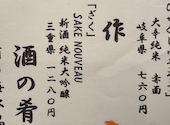 大辛純米 赤面
岐阜県 七六〇円
作
「ざく」
SAKE NOUVEAU
新酒 純米大吟醸
三重県 一二八〇円
酒の肴